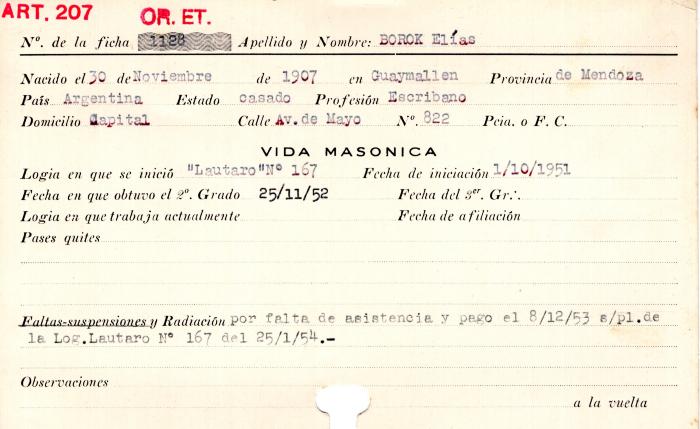 ART. 207
OR. ET.
Nº. de la ficha 1128 Apellido y Nombre: BOROK Elías
Nacido el 30 de Noviembre de 1907 en Guaymallen Provincia de Mendoza
País Argentina Estado casado Profesión Escribano
Domicilio Capital Calle Av. de Mayo Nº. 822 Pcia. o F. C.
VIDA MASONICA
Logia en que se inició "Lautaro" Nº 167 Fecha de iniciación 1/10/1951
Fecha en que obtuvo el 2º. Grado 25/11/52 Fecha del 3er. Gr.·.
Logia en que trabaja actualmente Fecha de afiliación
Pases quites
Faltas-suspensiones y Radiación por falta de asistencia y pago el 8/12/53 s/pl.de
la Log.Lautaro Nº 167 del 25/1/54.-
Observaciones
a la vuelta